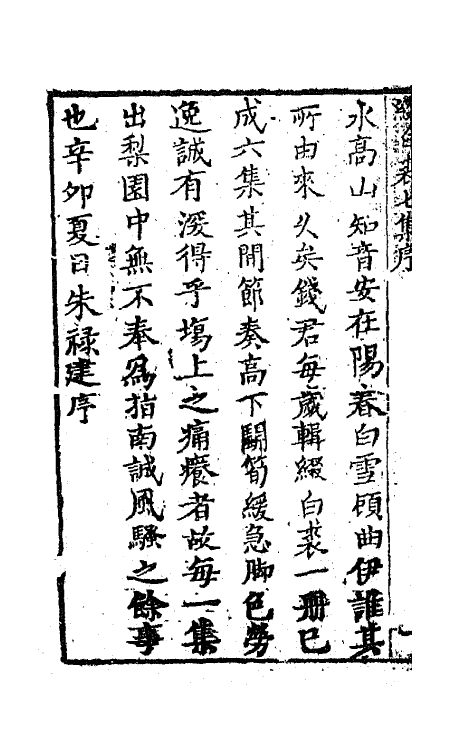 水高山知音安在陽春白雪顧曲伊誰其
所由來久矣錢君每歲輯綴白裘一冊已
成六集其間節奏高下鬬筍緩急脚色勞
逸誠有深得乎塲上之痛癢者故每一集
出梨園中無不奉爲指南誠風騷之餘事
也辛卯夏日朱祿建序